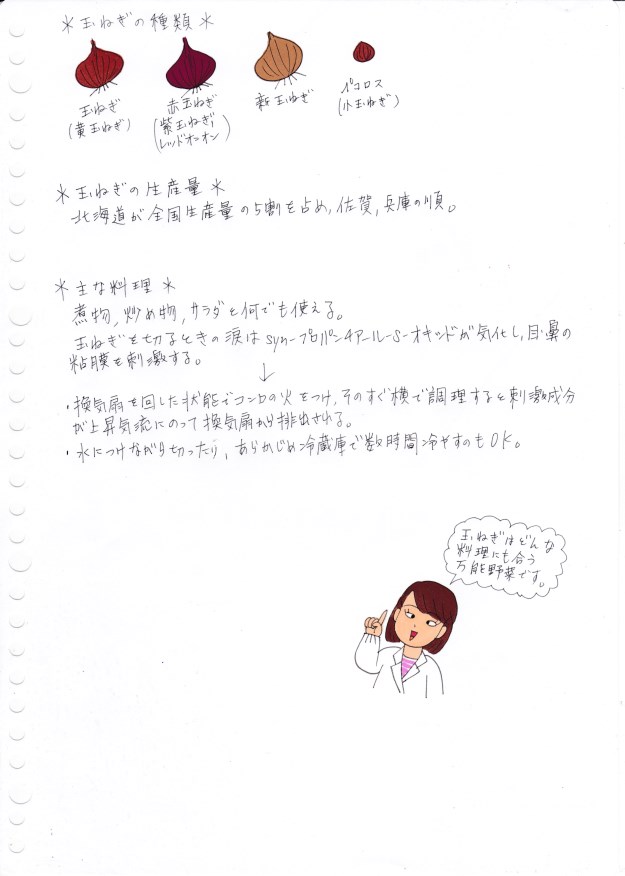 ＊玉ねぎの種類＊
玉ねぎ
(黄玉ねぎ)
赤玉ねぎ
(紫玉ねぎ,
レッドオニオン)
新玉ねぎ
ペコロス
(小玉ねぎ)
＊玉ねぎの生産量＊
北海道が全国生産量の5割を占め,佐賀,兵庫の順。
＊主な料理＊
煮物,炒め物,サラダと何でも使える。
玉ねぎを切るときの涙はsyn-プロパンチアール-S-オキシドが気化し,目・鼻の
粘膜を刺激する。
↓
・換気扇を回した状態でコンロの火をつけ,そのすぐ横で調理すると刺激成分
が上昇気流にのって換気扇から排出される。
・水につけながら切ったり,あらかじめ冷蔵庫で数時間冷やすのもOK。
玉ねぎはどんな
料理にも合う
万能野菜です。